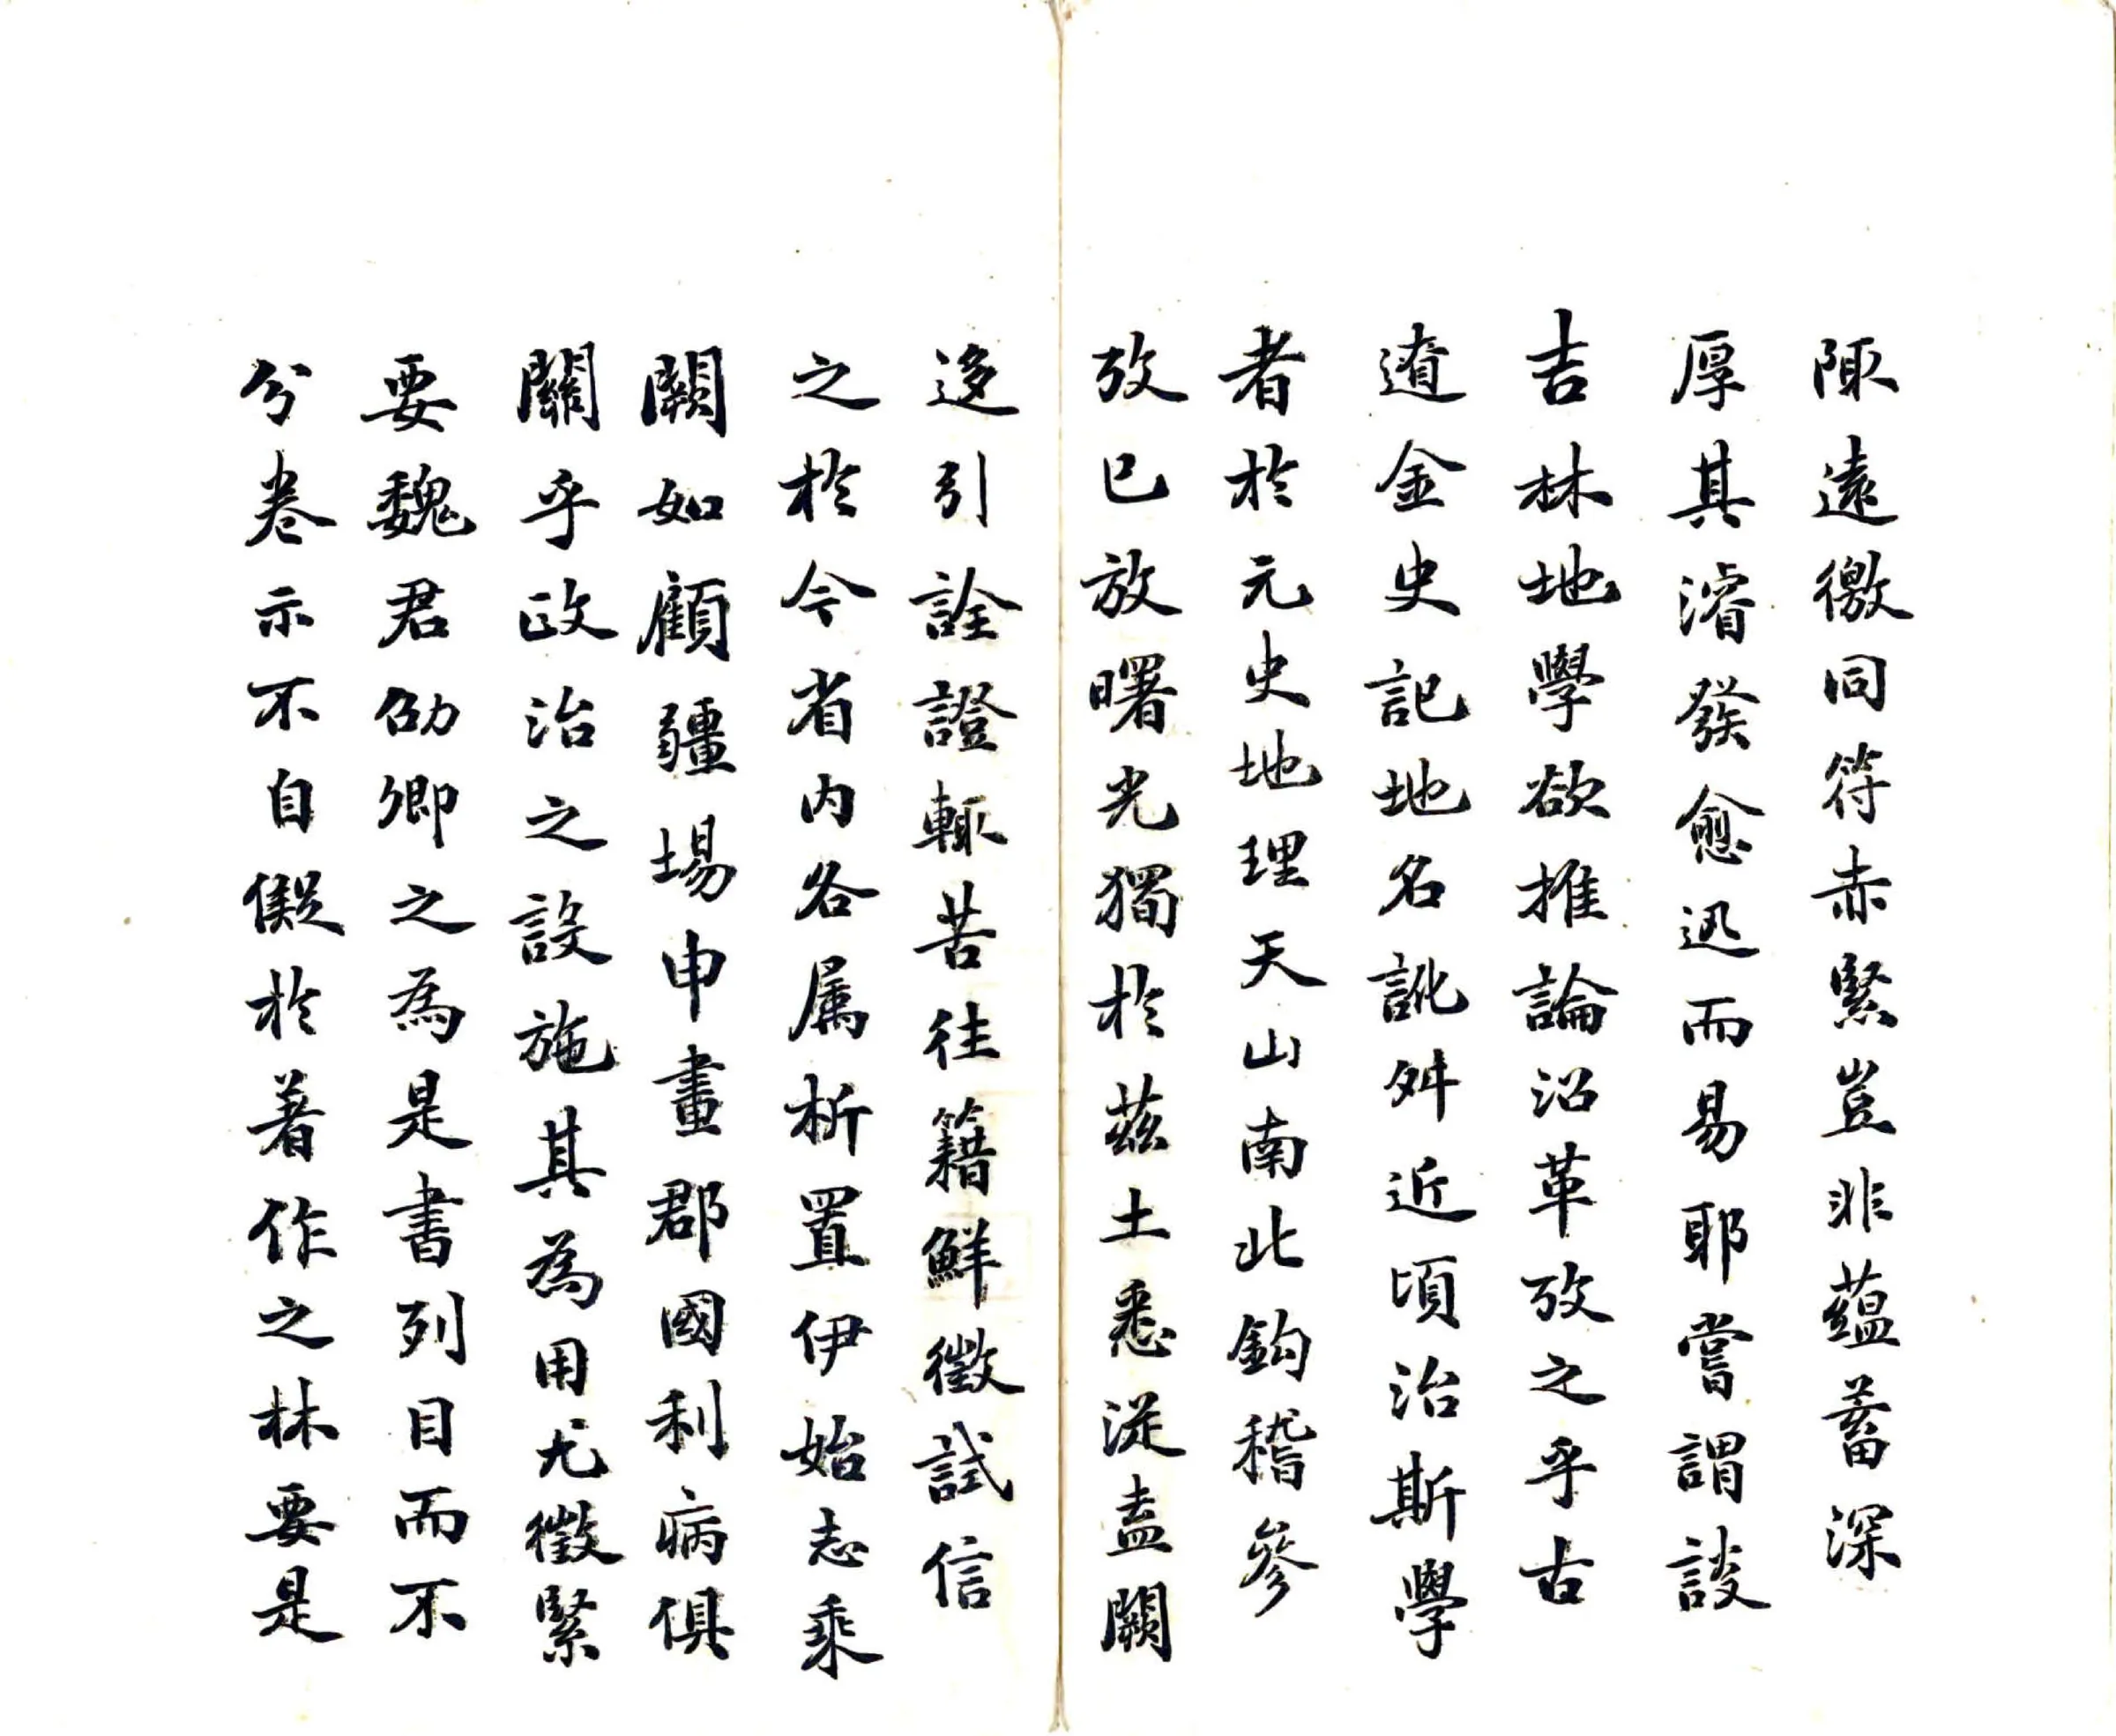 陬遠徼同符赤緊豈非蘊蓄深
厚其濬發愈迅而易耶嘗謂談
吉林地學欲推論沿革攷之乎古
遼金史記地名訛舛近頃治斯學
者於元史地理天山南北鈎稽參
攷已放曙光獨於茲土悉從蓋闕
迻引詮證輒苦往籍鮮徵試信
之於今省內各属析置伊始志乘
闕如顧疆埸申畫郡國利病俱
關乎政治之設施其為用尤徵緊
要魏君劭卿之為是書列目而不
分卷示不自儗於著作之林要是